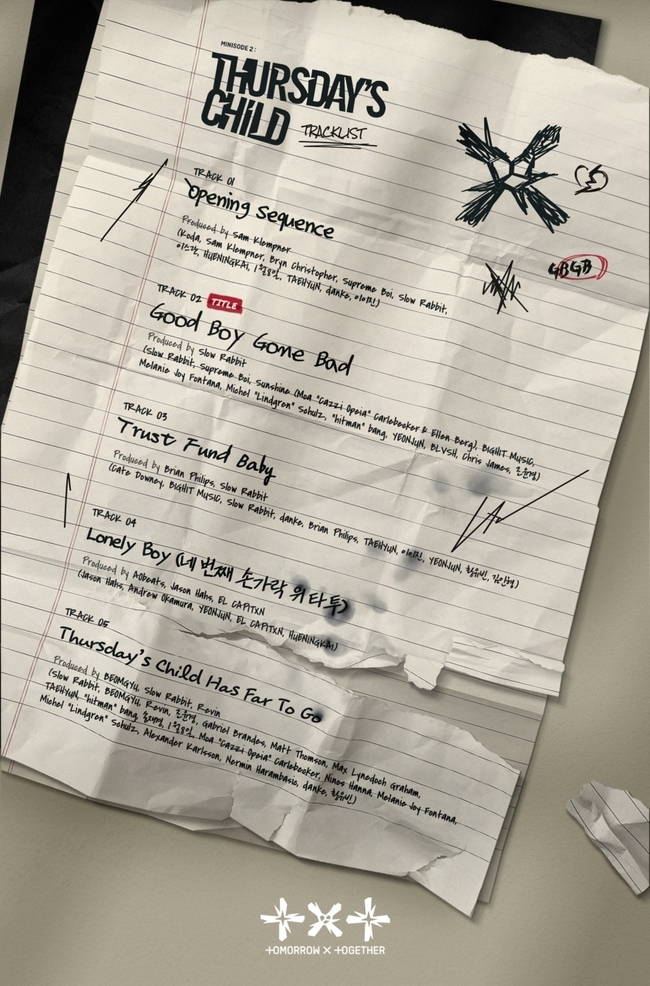 MINISODE 2 :
THURSDAY'S
CHILD TRACKLIST
TRACK 01
Opening Sequence
Produced by Sam Klempner
(Koda, Sam Klempner, Bryn Christopher, Supreme Boi, Slow Rabbit,
이스란, HUENINGKAI, 1월8일, TAEHYUN, danke, 이이진)
GBGB
TRACK 02 TITLE
Good Boy Gone Bad
Produced by Slow Rabbit
(Slow Rabbit, Supreme Boi, Sunshine (Moa "Cazzi Opeia" Carlebecker & Ellen Berg), BIGHIT MUSIC,
Melanie Joy Fontana, Michel "Lindgren" Schulz, "hitman" bang, YEONJUN, BLVSH, Chris James, 조윤경)
TRACK 03
Trust Fund Baby
Produced by Brian Philips, Slow Rabbit
(Cate Downey, BIGHIT MUSIC, Slow Rabbit, danke, Brian Philips, TAEHYUN, 이이진, YEONJUN, 황유빈, 김인형)
TRACK 04
Lonely Boy (네 번째 손가락 위 타투)
Produced by A0beats, Jason Hahs, EL CAPITXN
(Jason Hahs, Andrew Okamura, YEONJUN, EL CAPITXN, HUENINGKAI)
TRACK 05
Thursday's Child Has Far To Go
Produced by BEOMGYU, Slow Rabbit, Revin
(Slow Rabbit, BEOMGYU, Revin, 조윤경, Gabriel Brandes, Matt Thomson, Max Lynedoch Graham,
TAEHYUN, "hitman" bang, 1월8일, Moa "Cazzi Opeia" Carlebecker, Ninos Hanna, Melanie Joy Fontana,
Michel "Lindgren" Schulz, Alexander Karlsson, Nermin Harambasic, danke, 황유빈)
TOMORROW X TOGETHER